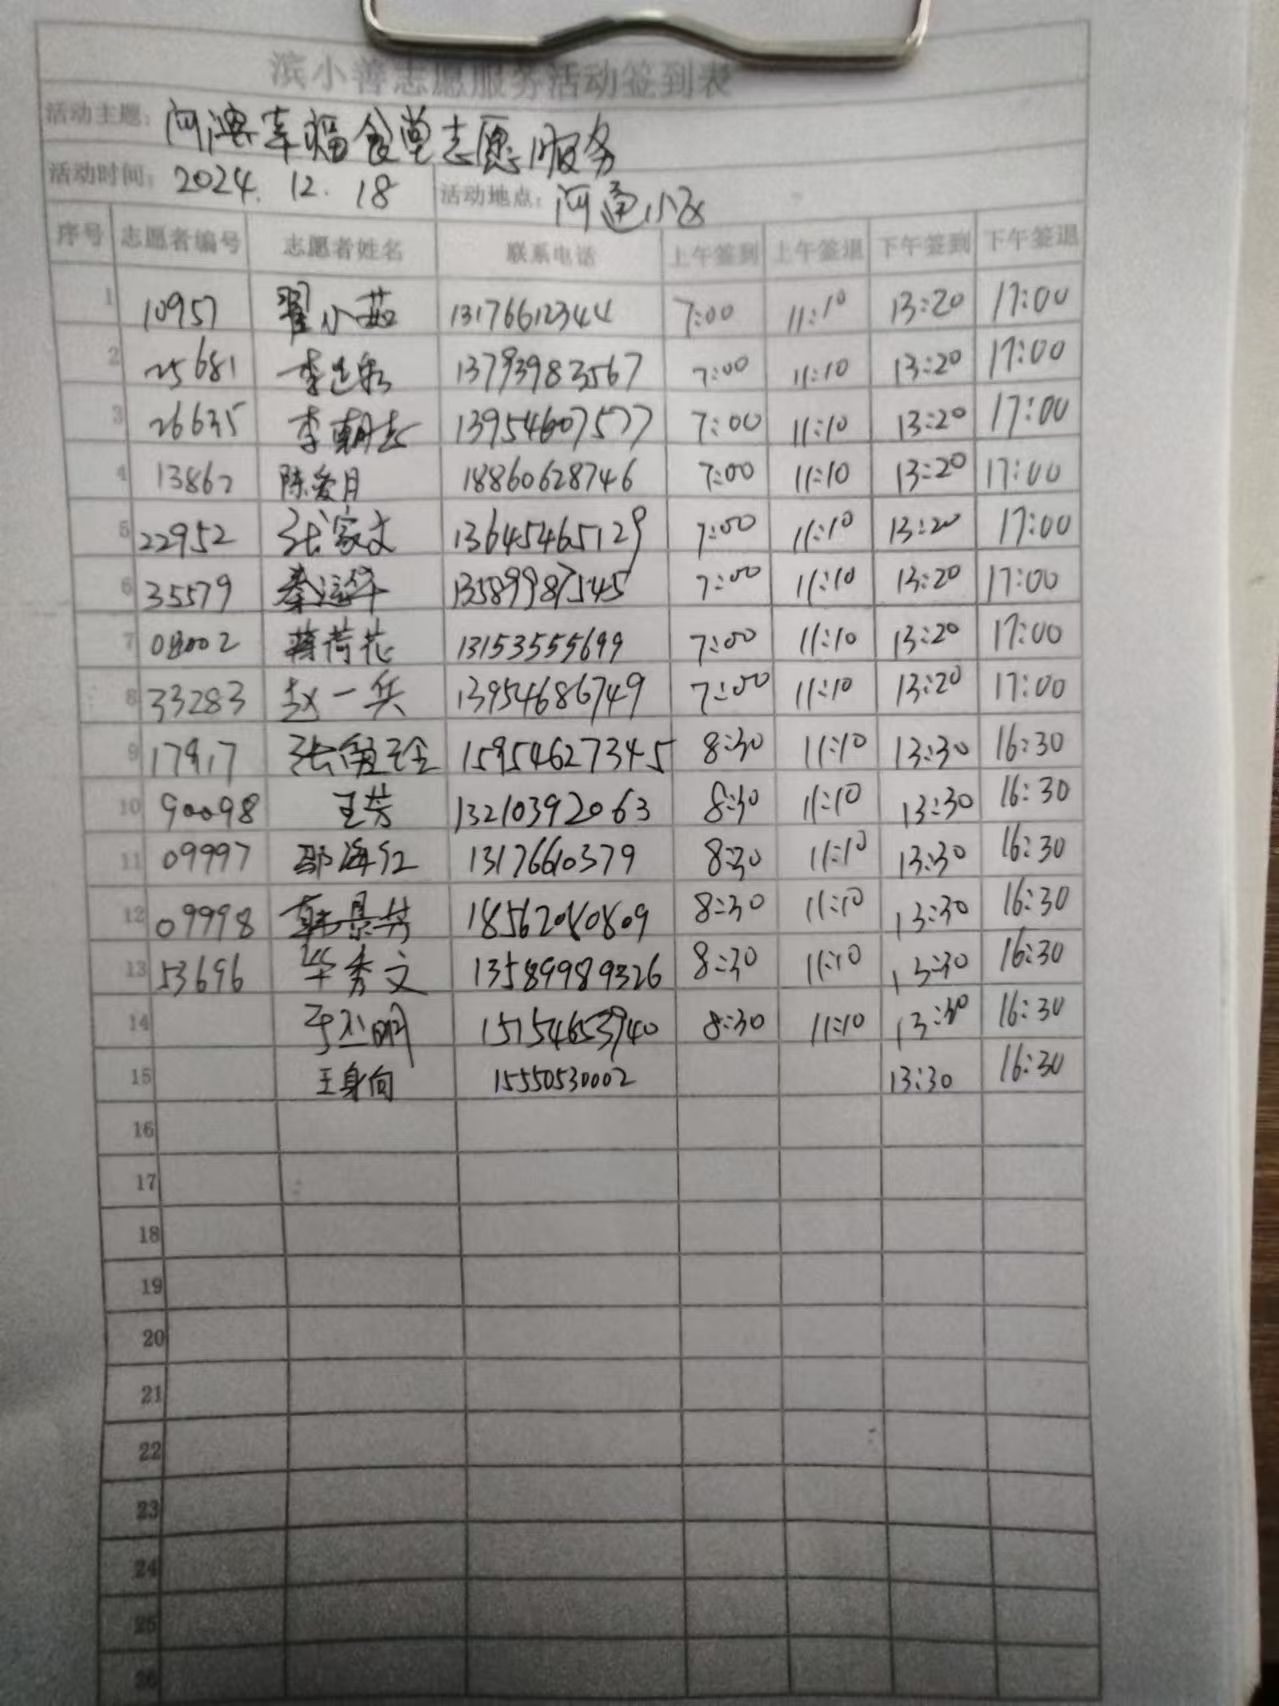 滨小善志愿服务活动签到表
活动主题: 河滨幸福食堂志愿服务
活动时间: 2024.12.18 活动地点: 河通小区
序号 志愿者编号 志愿者姓名 联系电话 上午签到 上午签退 下午签到 下午签退
1 10957 翟小茹 13176612344 7:00 11:10 13:20 17:00
2 25681 李 13793983567 7:00 11:10 13:20 17:00
3 26635 李朝 13954607577 7:00 11:10 13:20 17:00
4 13862 陈爱月 18860628746 7:00 11:10 13:20 17:00
5 22952 张家文 13645465129 7:00 11:10 13:20 17:00
6 35579 秦运华 13589987545 7:00 11:10 13:20 17:00
7 08002 蒋荷花 13153555699 7:00 11:10 13:20 17:00
8 33283 赵一兵 13954686749 7:00 11:10 13:20 17:00
9 17917 张 15954627345 8:30 11:10 13:30 16:30
10 90098 王芳 13210392063 8:30 11:10 13:30 16:30
11 09997 邵海红 1317660379 8:30 11:10 13:30 16:30
12 09998 韩景芳 18562080809 8:30 11:10 13:30 16:30
13 53696 毕秀文 13589989326 8:30 11:10 13:30 16:30
14 于 明 15154653940 8:30 11:10 13:30 16:30
15 王身向 15550530002 13:30 16:30
16
17
18
19
20
21
22
23
24
25
26